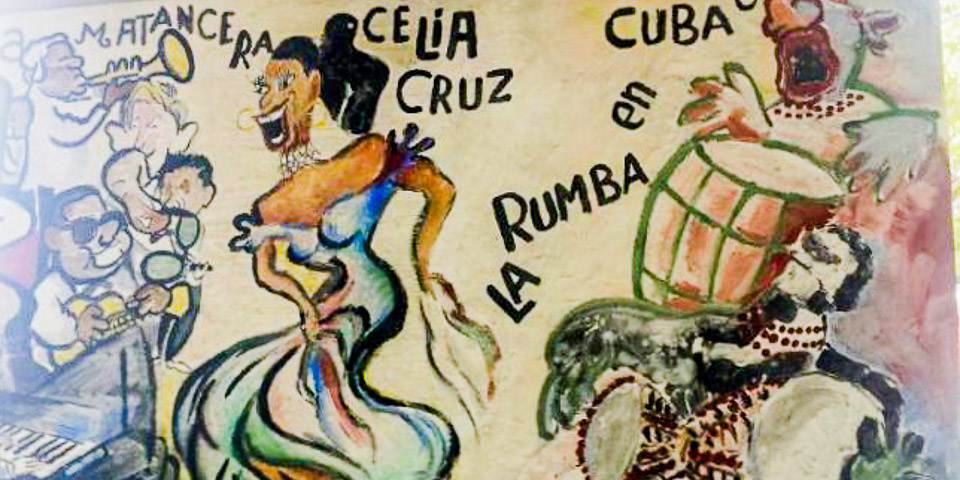 MATANCERA
CELIA
CRUZ
LA RUMBA en
CUBA